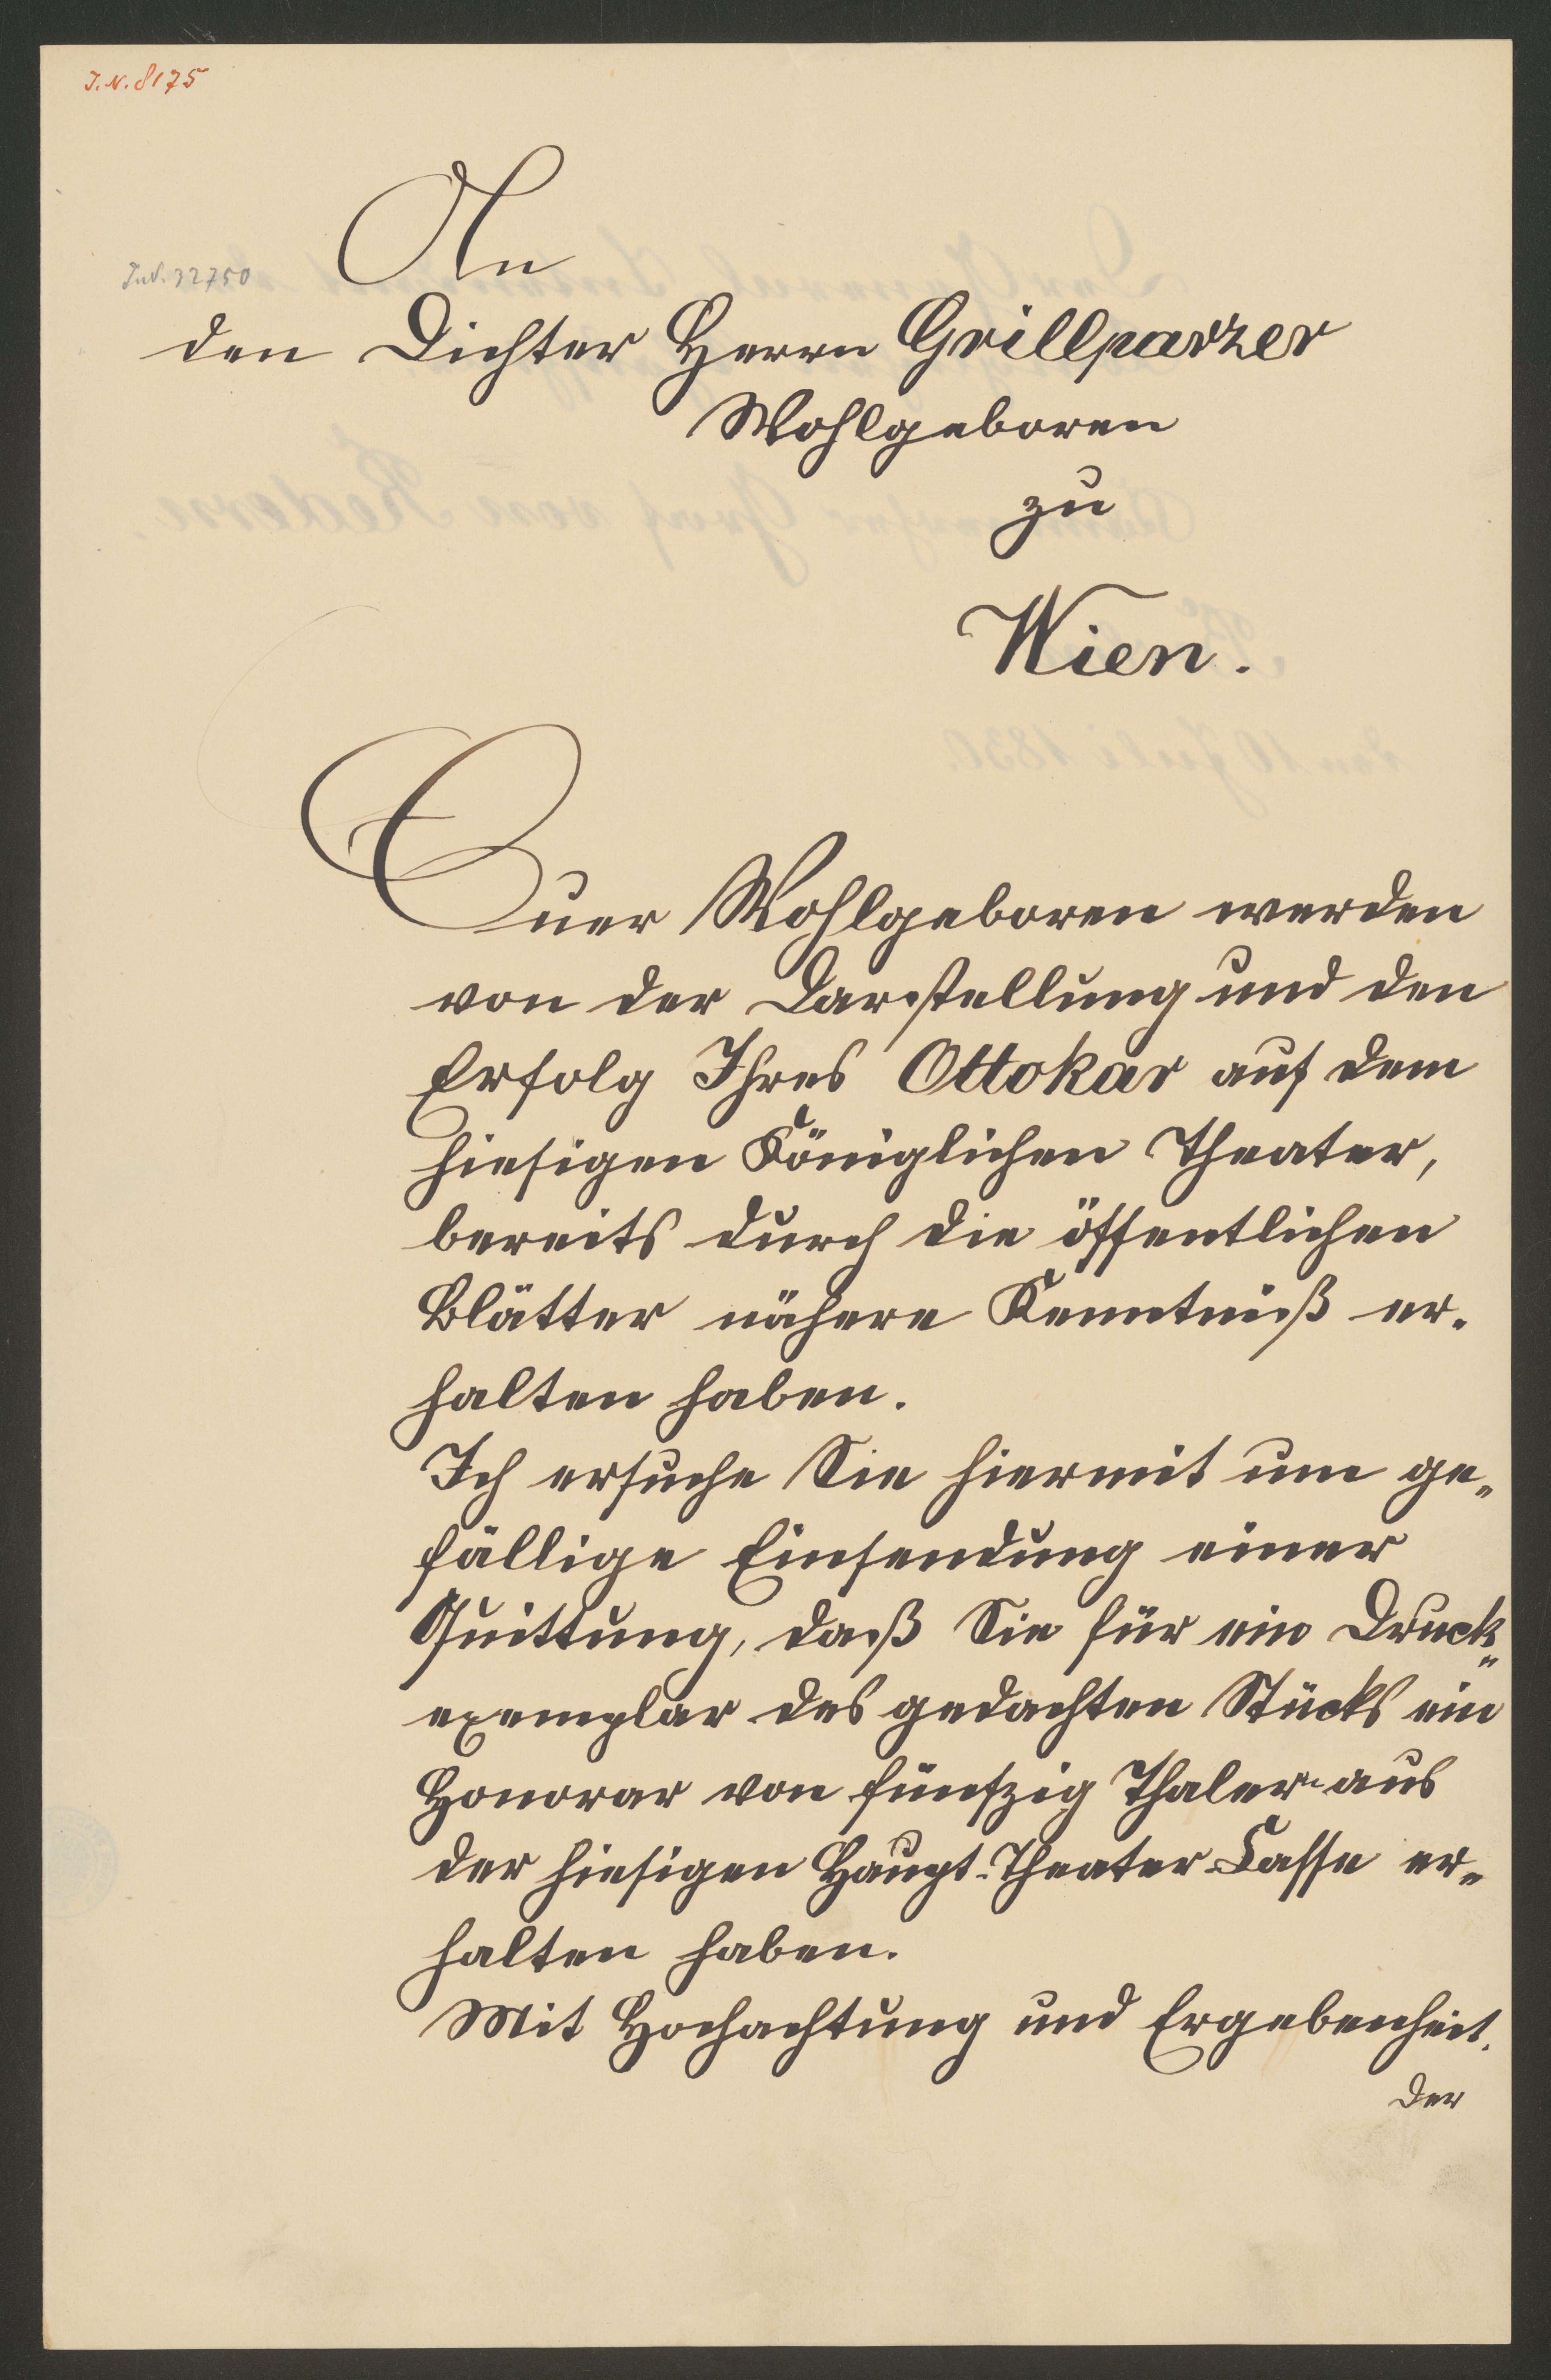 J.N. 8175
An
J.N. 32750
den Dichter Herrn Grillparzer
Wohlgeboren
zu
Wien.
Euer Wohlgeboren werden
von der Darstellung und den
Erfolg Ihres Ottokar auf dem
hiesigen Königlichen Theater,
bereits durch die öffentlichen
Blätter nähere Kenntniß er-
halten haben.
Ich ersuche Sie hiermit um ge-
fällige Einsendung einer
Quittung, daß Sie für ein Druck-
exemplar des gedachten Stücks ein
Honorar von fünfzig Thaler aus
der hiesigen Haupt-Theater-Casse er-
halten haben.
Mit Hochachtung und Ergebenheit.
Der